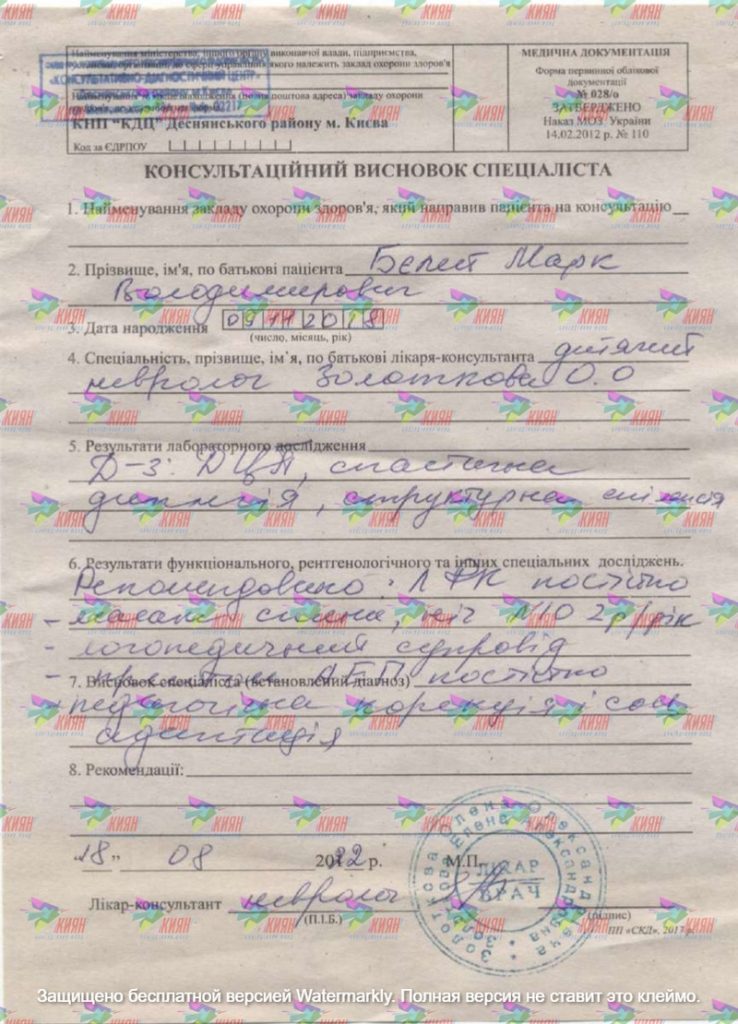 Найменування міністерства, іншого органу виконавчої влади, підприємства,
якого належить заклад охорони здоров'я
«КОНСУЛЬТАТИВНО-ДІАГНОСТИЧНИЙ ЦЕНТР»
(повна поштова адреса) закладу охорони
КНП “КДЦ” Деснянського району м. Києва
Код за ЄДРПОУ
МЕДИЧНА ДОКУМЕНТАЦІЯ
Форма первинної облікової
документації
№ 028/о
ЗАТВЕРДЖЕНО
Наказ МОЗ України
14.02.2012 р. № 110
КОНСУЛЬТАЦІЙНИЙ ВИСНОВОК СПЕЦІАЛІСТА
1. Найменування закладу охорони здоров'я, який направив пацієнта на консультацію
2. Прізвище, ім'я, по батькові пацієнта Марк
Володимирович
3. Дата народження 09 11 2018
(число, місяць, рік)
4. Спеціальність, прізвище, ім`я, по батькові лікаря-консультанта дитячий
невролог Золоткова О.О
5. Результати лабораторного дослідження
Д-з: ДЦП, спастична
диплегія, структурна епілепсія
6. Результати функціонального, рентгенологічного та інших спеціальних досліджень.
Рекомендовано: ЛФК постійно
- масаж спина, ніг №10 2р/рік
- логопедичний супровід
7. Висновок спеціаліста (встановлений діагноз) постійно
педагогічна корекція і соц.
адаптація
8. Рекомендації:
“18” 08 2022 р. М.П.
Лікар-консультант невролог
(П.І.Б.) (підпис)
ПП «СКД», 2017 р.
Золоткова Олена Олександрівна
ЛІКАР
ВРАЧ
КИЯН
Защищено бесплатной версией Watermarkly. Полная версия не ставит это клеймо.